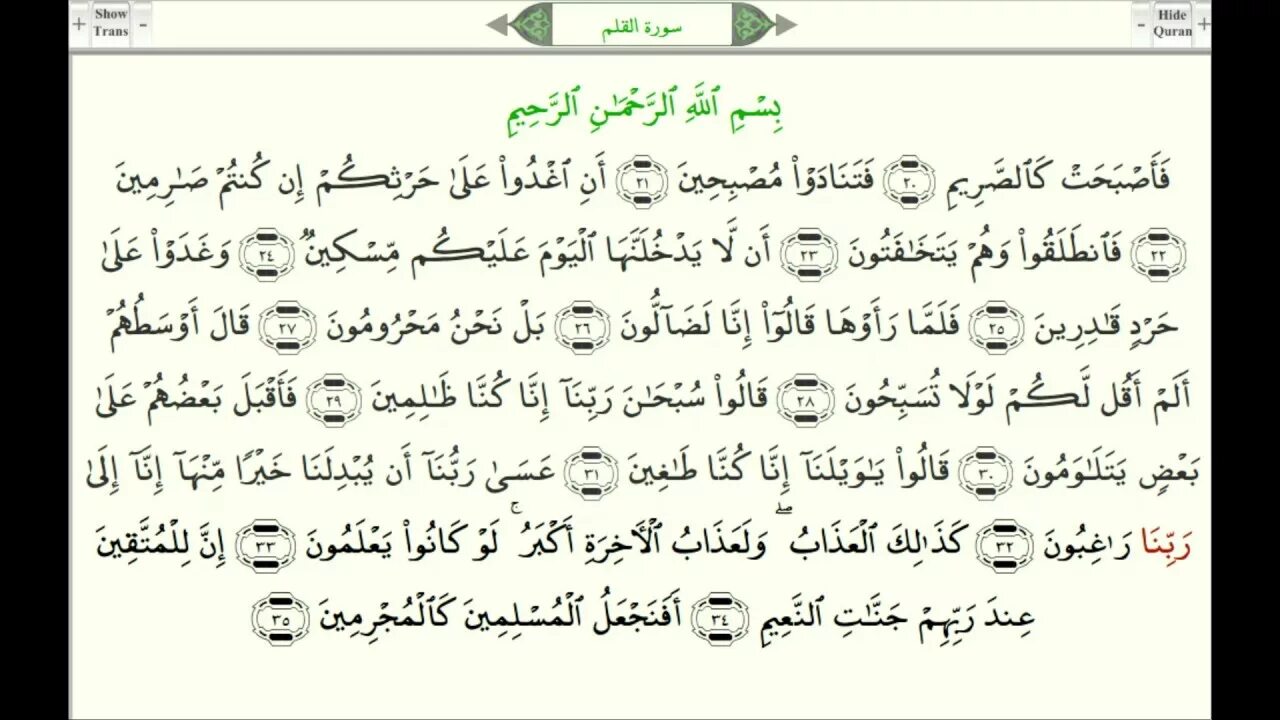 + Show Trans -
سورة القلم
- Hide Quran +
بِسْمِ ٱللَّهِ ٱلرَّحْمَـٰنِ ٱلرَّحِيمِ
فَأَصْبَحَتْ كَٱلصَّرِيمِ ٢٠ فَتَنَادَوْا۟ مُصْبِحِينَ ٢١ أَنِ ٱغْدُوا۟ عَلَىٰ حَرْثِكُمْ إِن كُنتُمْ صَـٰرِمِينَ
٢٢ فَٱنطَلَقُوا۟ وَهُمْ يَتَخَـٰفَتُونَ ٢٣ أَن لَّا يَدْخُلَنَّهَا ٱلْيَوْمَ عَلَيْكُم مِّسْكِينٌ ٢٤ وَغَدَوْا۟ عَلَىٰ
حَرْدٍ قَـٰدِرِينَ ٢٥ فَلَمَّا رَأَوْهَا قَالُوٓا۟ إِنَّا لَضَآلُّونَ ٢٦ بَلْ نَحْنُ مَحْرُومُونَ ٢٧ قَالَ أَوْسَطُهُمْ
أَلَمْ أَقُل لَّكُمْ لَوْلَا تُسَبِّحُونَ ٢٨ قَالُوا۟ سُبْحَـٰنَ رَبِّنَآ إِنَّا كُنَّا ظَـٰلِمِينَ ٢٩ فَأَقْبَلَ بَعْضُهُمْ عَلَىٰ
بَعْضٍ يَتَلَـٰوَمُونَ ٣٠ قَالُوا۟ يَـٰوَيْلَنَآ إِنَّا كُنَّا طَـٰغِينَ ٣١ عَسَىٰ رَبُّنَآ أَن يُبْدِلَنَا خَيْرًا مِّنْهَآ إِنَّآ إِلَىٰ
رَبِّنَا رَٰغِبُونَ ٣٢ كَذَٰلِكَ ٱلْعَذَابُ ۖ وَلَعَذَابُ ٱلْـَٔاخِرَةِ أَكْبَرُ ۚ لَوْ كَانُوا۟ يَعْلَمُونَ ٣٣ إِنَّ لِلْمُتَّقِينَ
عِندَ رَبِّهِمْ جَنَّـٰتِ ٱلنَّعِيمِ ٣٤ أَفَنَجْعَلُ ٱلْمُسْلِمِينَ كَٱلْمُجْرِمِينَ ٣٥